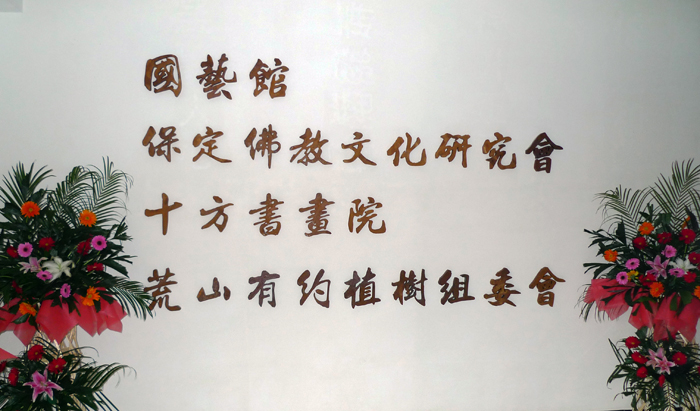 國藝館
保定佛教文化研究會
十方書畫院
荒山有約植樹組委會